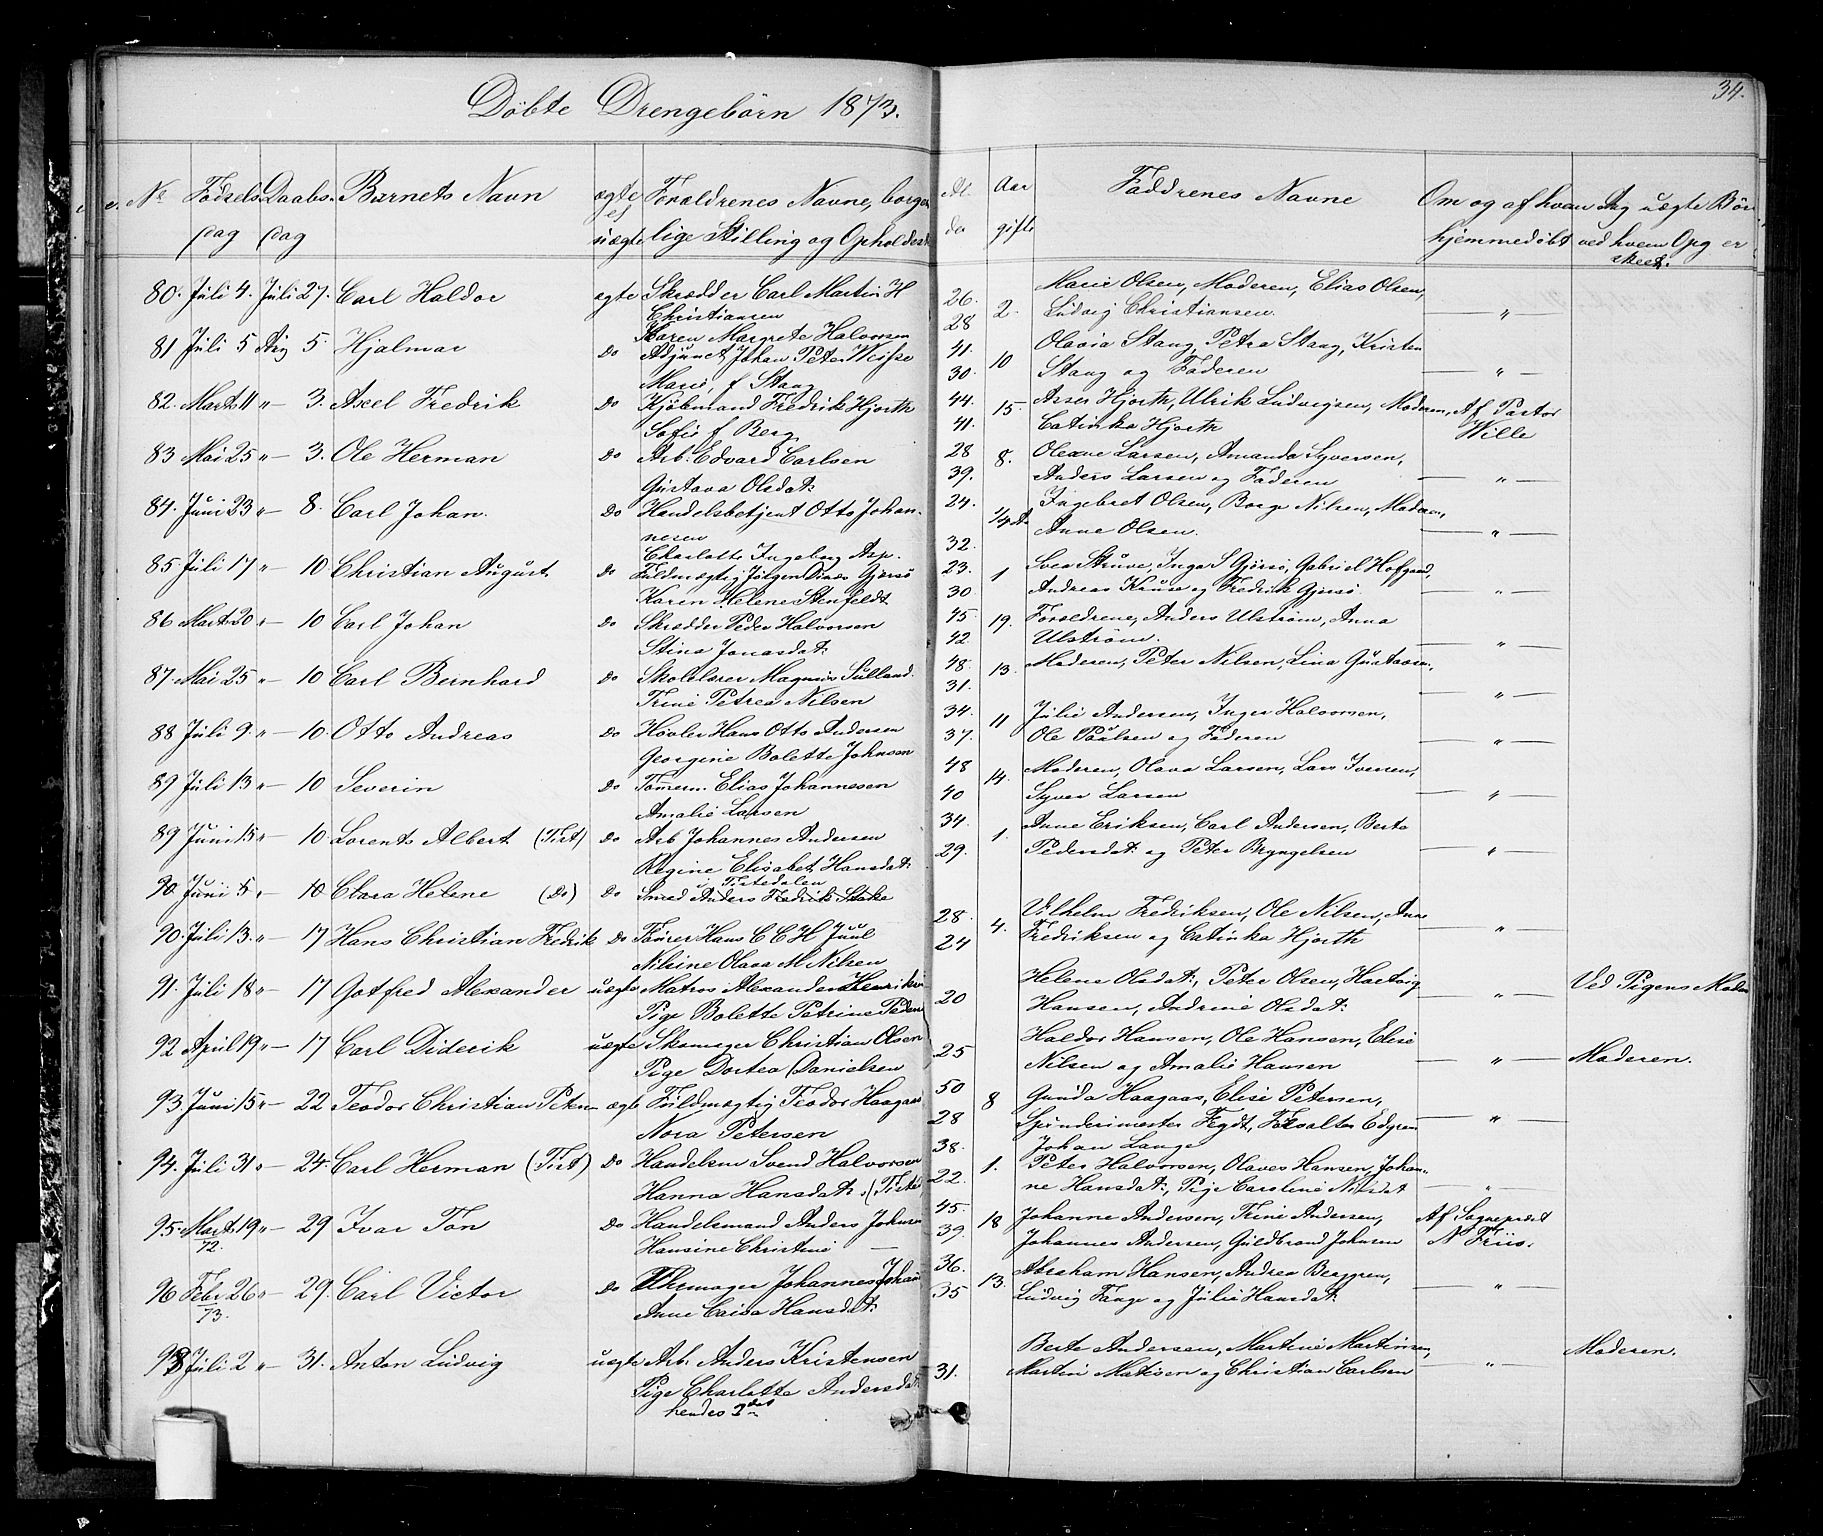 Döbte Drengebörn 1873.
34.
No Födsels Daabs Barnets Navn ægte Forældrenes Navne, borger Al Aar Faddrenes Navne Om og af hvem Ang uægte Bör
dag dag uægte lige Stilling og Opholdsst der gifte hjemmedöbt ved hvem Opg er
skeet.
80. Juli 4. Juli 27. Carl Haldor ægte Skrædder Carl Martin H 26. 2. Marie Olsen, Moderen, Elias Olsen,
Christiansen 28 Ludvig Christiansen. — " —
Karen Margrete Halvorsen
81 Juli 5 Aug 5. Hjalmar do Adjunct Johan Peter Weisse 41. 10 Olavia Stang, Petra Stang, Kristen
Marie, f Stang 30. Stang og Faderen — " —
82. Marts 11 " — 3. Axel Fredrik do Kjöbmand Fredrik Hjorth 44. 15. Asser Hjorth, Ulrik Ludvigsen, Moderen, Af Pastor
Sofie f Berg 41. Catinka Hjorth Wille
83 Mai 25 " — 3. Ole Herman do Arb. Edvard Carlsen 28 8. Olexne Larsen, Amanda Syversen,
Gustava Olsdat: 39. Anders Larsen og Faderen — " —
84. Juni 23 " — 8. Carl Johan. do Handelsbetjent Otto Johan- 24. 1/4 A Ingebret Olsen, Borge Nilsen, Moderen,
nesen Anne Olsen. — " —
Charlotte Ingeborg Asp. 32.
85. Juli 17 " — 10. Christian August do Fuldmægtig Jörgen Dines Gjersö 23. 1 Svea Struve, Inga S Gjersö, Gabriel Hofgaard,
Karen Helene Stenfeldt 30. Andreas Kruse og Fredrik Gjersö. — " —
86 Mart 20 " — 10 Carl Johan do Skrædder Peder Halvorsen 45. 19. Forældrene, Anders Ulström, Anna
Stina Jonasdat: 42. Ulström. — " —
87. Mai 25 " — 10 Carl Bernhard do Skolelærer Magnus Sulland. 48. 13. Moderen, Peter Nilsen, Lina Gustavsen,
Trine Petrea Nilsen 31. — " —
88 Juli 9 " — 10. Otto Andreas do Hövler Hans Otto Andersen 34. 11 Julie Andersen, Inger Halvorsen,
Georgine Bolette Johnsen 37. Ole Paulsen og Faderen — " —
89 Juli 13 " — 10 Severin do Tömerm. Elias Johannesen 48 14. Moderen, Olava Larsen, Lars Iversen,
Amalie Larsen 40 Syver Larsen — " —
89 Juni 15 " — 10. Lorents Albert (Tist) do Arb Johannes Andersen 34. 1. Anne Eriksen, Carl Andersen, Berte
Regine Elisabet Hansdat: 29. Pedersdat: og Peter Bryngelsen — " —
i Tistedalen
90. Juni 5 " — 10 Clara Helene (do) do Smed Anders Fredrik Stake
90. Juli 13. " — 17 Hans Christian Fredrik do Hans C C H Juul 28. 4. Vilhelm Fredriksen, Ole Nilsen, Anne
Nilsine Olava M Nilsen 24 Fredriksen og Catinka Hjorth — " —
91. Juli 18 " — 17 Gotfred Alexander uægte Matros Alexander Henriksen Helene Olsdat:, Peter Olsen, Hartvig Ved Pigens Moder
Pige Bolette Petrine Peders 20 Hansen, Andrine Olsdat: — " —
92 April 19 " — 17 Carl Diderik uægte Skomager Christian Olsen 25 Haldor Hansen, Ole Hansen, Elise
Pige Dortea Danielsen Nilsen og Amalie Hansen — " — Moderen.
93. Juni 15 " — 22 Teodor Christian Petersen ægte Fuldmægtig Teodor Haagaas 50 8 Gunda Haagaas, Elise Petersen,
Nora Petersen 28 Spinderimester Fegdt, Edgren — " —
Johan Lange
94. Juli 31 " — 24. Carl Herman (Tist) do Handelsm Svend Halvorsen 38. 1. Peter Halvorsen, Olaves Hansen, Johan-
Hanna Hansdat: (Tisted 22. ne Hansdat:, Pige Caroline Nilsdat — " —
95. Mart 19 " — 29 Ivar Ton do Handelsmand Anders Johnsen 45. 18 Johanne Andersen, Trine Andersen, Af Sognepræst
72. Hansine Christine — 39. Johannes Andersen, Guldbrand Johnsen N Friis.
96 Febr 26 " — 29. Carl Victor do Johannes Johan 36. 13. Abraham Hansen, Andrea Berggren,
73. Anne Caisa Hansdat: 35 Ludvig Fange og Julie Hansdat: — " —
98 Juli 2 " — 31. Anton Ludvig uægte Arb. Anders Kristensen Berte Andersen, Martine Martinsen, Moderen.
Pige Charlotte Andersdat: 31. Martin Matisen og Christian Carlsen — " —
hendes 2det